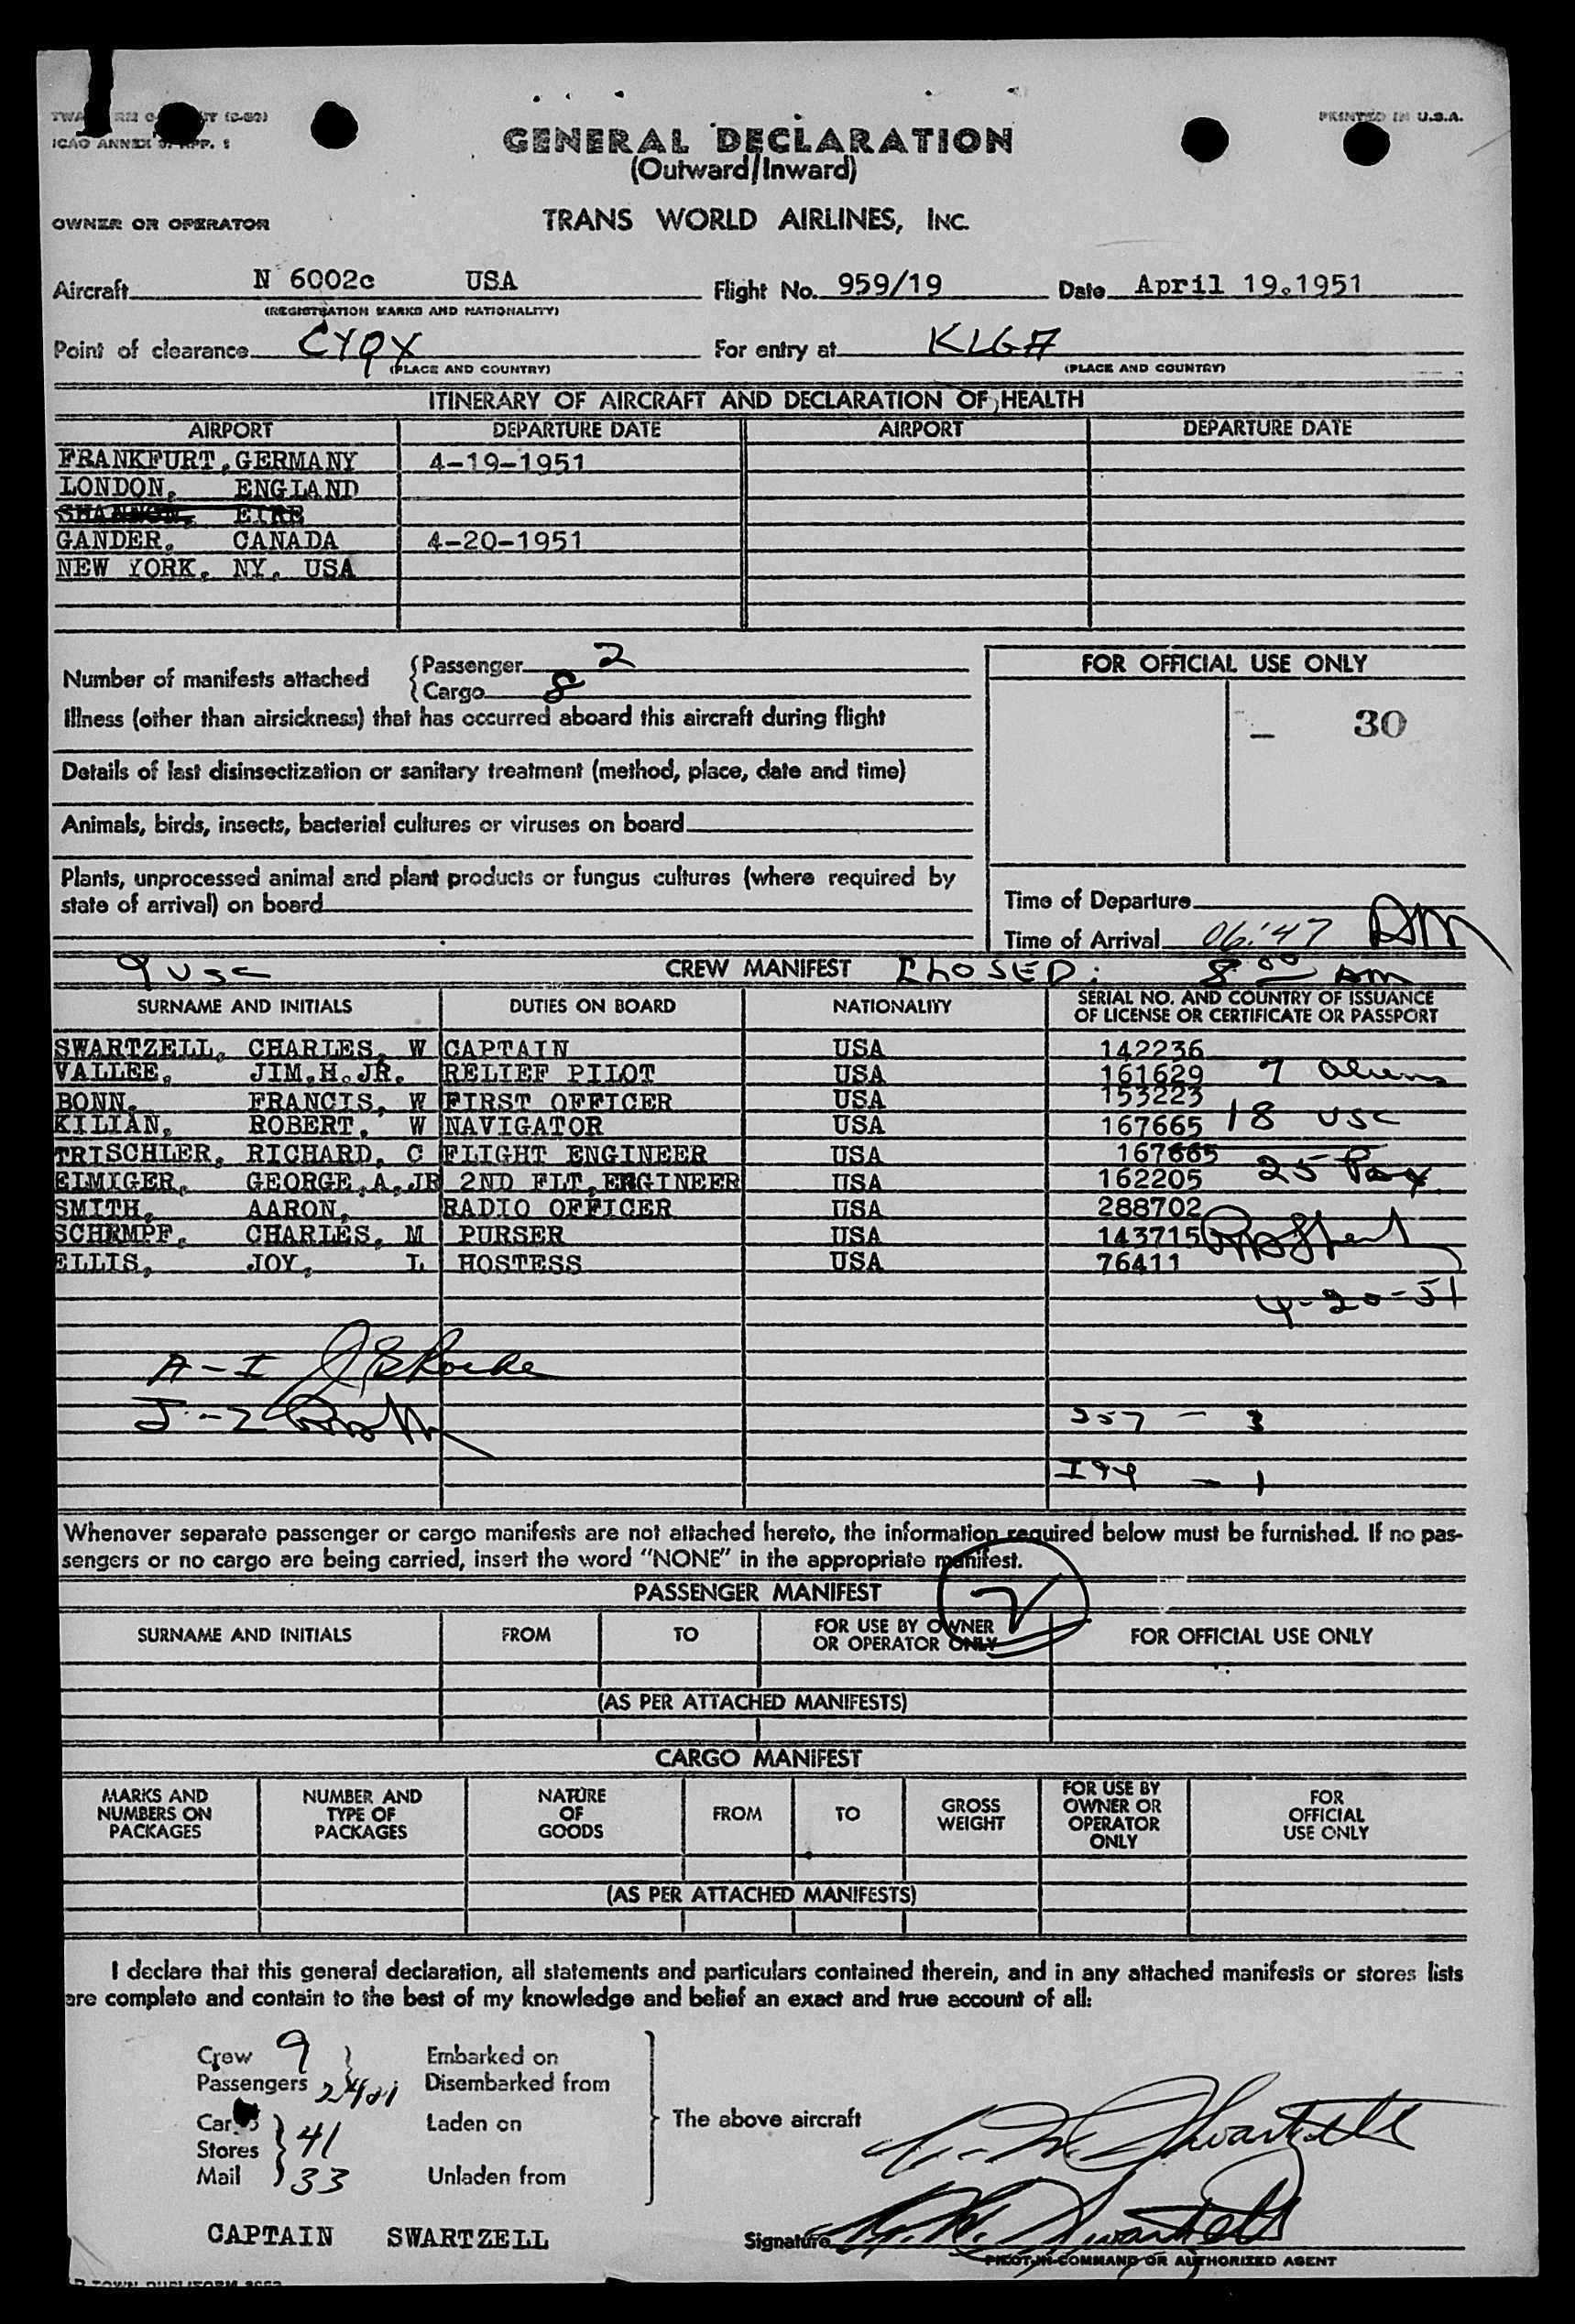 ICAO ANNEX 9, APP. 1
PRINTED IN U.S.A.
GENERAL DECLARATION
(Outward/Inward)
OWNER OR OPERATOR TRANS WORLD AIRLINES, INC.
Aircraft N 6002c USA Flight No. 959/19 Date April 19.1951
(REGISTRATION MARKS AND NATIONALITY)
Point of clearance CYQX For entry at KLGA
(PLACE AND COUNTRY) (PLACE AND COUNTRY)
ITINERARY OF AIRCRAFT AND DECLARATION OF HEALTH
AIRPORT DEPARTURE DATE AIRPORT DEPARTURE DATE
FRANKFURT,GERMANY 4-19-1951
LONDON, ENGLAND
SHANNON, EIRE
GANDER, CANADA 4-20-1951
NEW YORK, NY, USA
Number of manifests attached
Passenger 2
Cargo 8
FOR OFFICIAL USE ONLY
Illness (other than airsickness) that has occurred aboard this aircraft during flight
– 30
Details of last disinsectization or sanitary treatment (method, place, date and time)
Animals, birds, insects, bacterial cultures or viruses on board
Plants, unprocessed animal and plant products or fungus cultures (where required by
state of arrival) on board
Time of Departure
Time of Arrival 06:47 AM
9 USC CREW MANIFEST CLOSED: 8 00 AM
SURNAME AND INITIALS DUTIES ON BOARD NATIONALITY SERIAL NO. AND COUNTRY OF ISSUANCE
OF LICENSE OR CERTIFICATE OR PASSPORT
SWARTZELL, CHARLES, W CAPTAIN USA 142236
VALLEE, JIM.H.JR. RELIEF PILOT USA 161629 7 Aliens
BONN, FRANCIS, W FIRST OFFICER USA 153223
KILIAN, ROBERT, W NAVIGATOR USA 167665 18 USC
TRISCHLER, RICHARD, C FLIGHT ENGINEER USA 167665
EIMIGER, GEORGE,A,JR 2ND FLT.ENGINEER USA 162205 25 Pax
SMITH, AARON, RADIO OFFICER USA 288702
SCHEMPF, CHARLES, M PURSER USA 143715
ELLIS, JOY, L HOSTESS USA 76411
4-20-51
A-I
J-Z
257 - 3
I94 - 1
Whenever separate passenger or cargo manifests are not attached hereto, the information required below must be furnished. If no pas-
sengers or no cargo are being carried, insert the word "NONE" in the appropriate manifest.
PASSENGER MANIFEST
SURNAME AND INITIALS FROM TO FOR USE BY OWNER OR OPERATOR ONLY FOR OFFICIAL USE ONLY
(AS PER ATTACHED MANIFESTS)
CARGO MANIFEST
MARKS AND NUMBERS ON PACKAGES NUMBER AND TYPE OF PACKAGES NATURE OF GOODS FROM TO GROSS WEIGHT FOR USE BY OWNER OR OPERATOR ONLY FOR OFFICIAL USE ONLY
(AS PER ATTACHED MANIFESTS)
I declare that this general declaration, all statements and particulars contained therein, and in any attached manifests or stores lists
are complete and contain to the best of my knowledge and belief an exact and true account of all:
Crew 9 Embarked on
Passengers Disembarked from
Cargo Laden on The above aircraft
Stores 41
Mail 33 Unladen from
C. W. Swartzell
CAPTAIN SWARTZELL Signature C. W. Swartzell
PILOT-IN-COMMAND OR AUTHORIZED AGENT